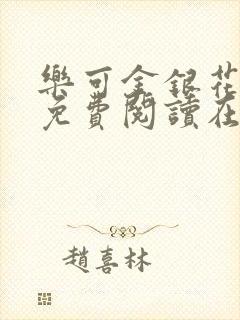 樂可金銀花
免費閱讀在
趙喜林